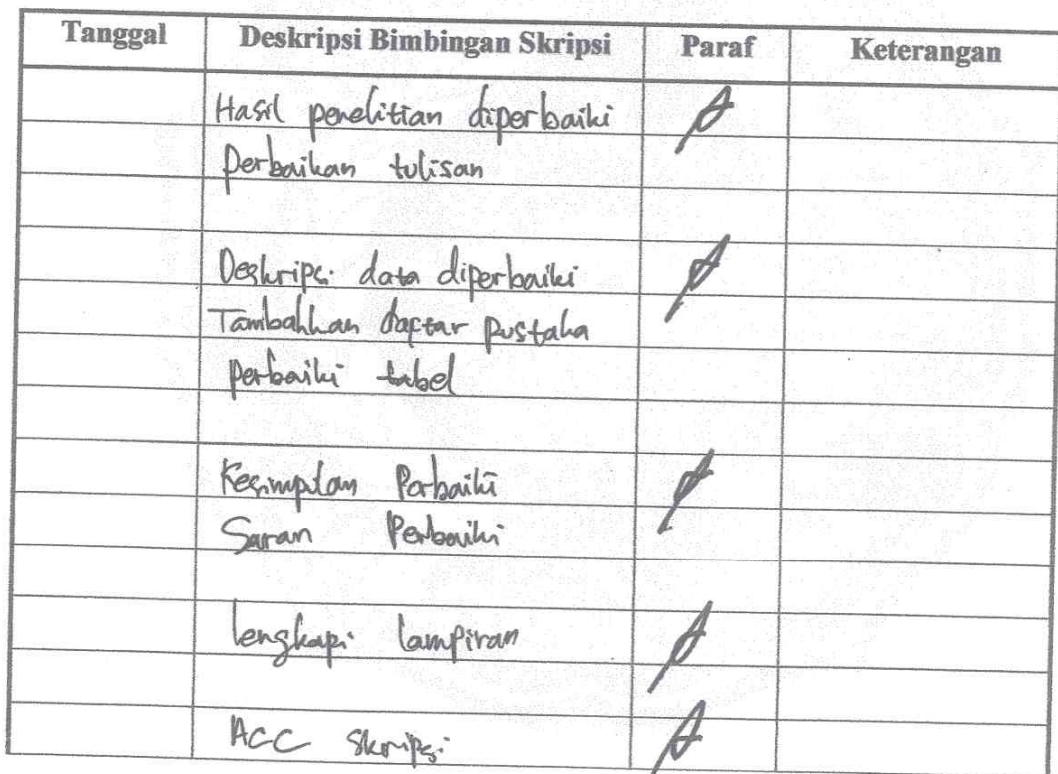 Tanggal Deskripsi Bimbingan Skripsi Paraf Keterangan
Hasil penelitian diperbaiki
Perbaikan tulisan
Deskripsi data diperbaiki
Tambahkan daftar pustaka
Perbaiki tabel
Kesimpulan Perbaiki
Saran Perbaiki
lengkapi lampiran
ACC skripsi